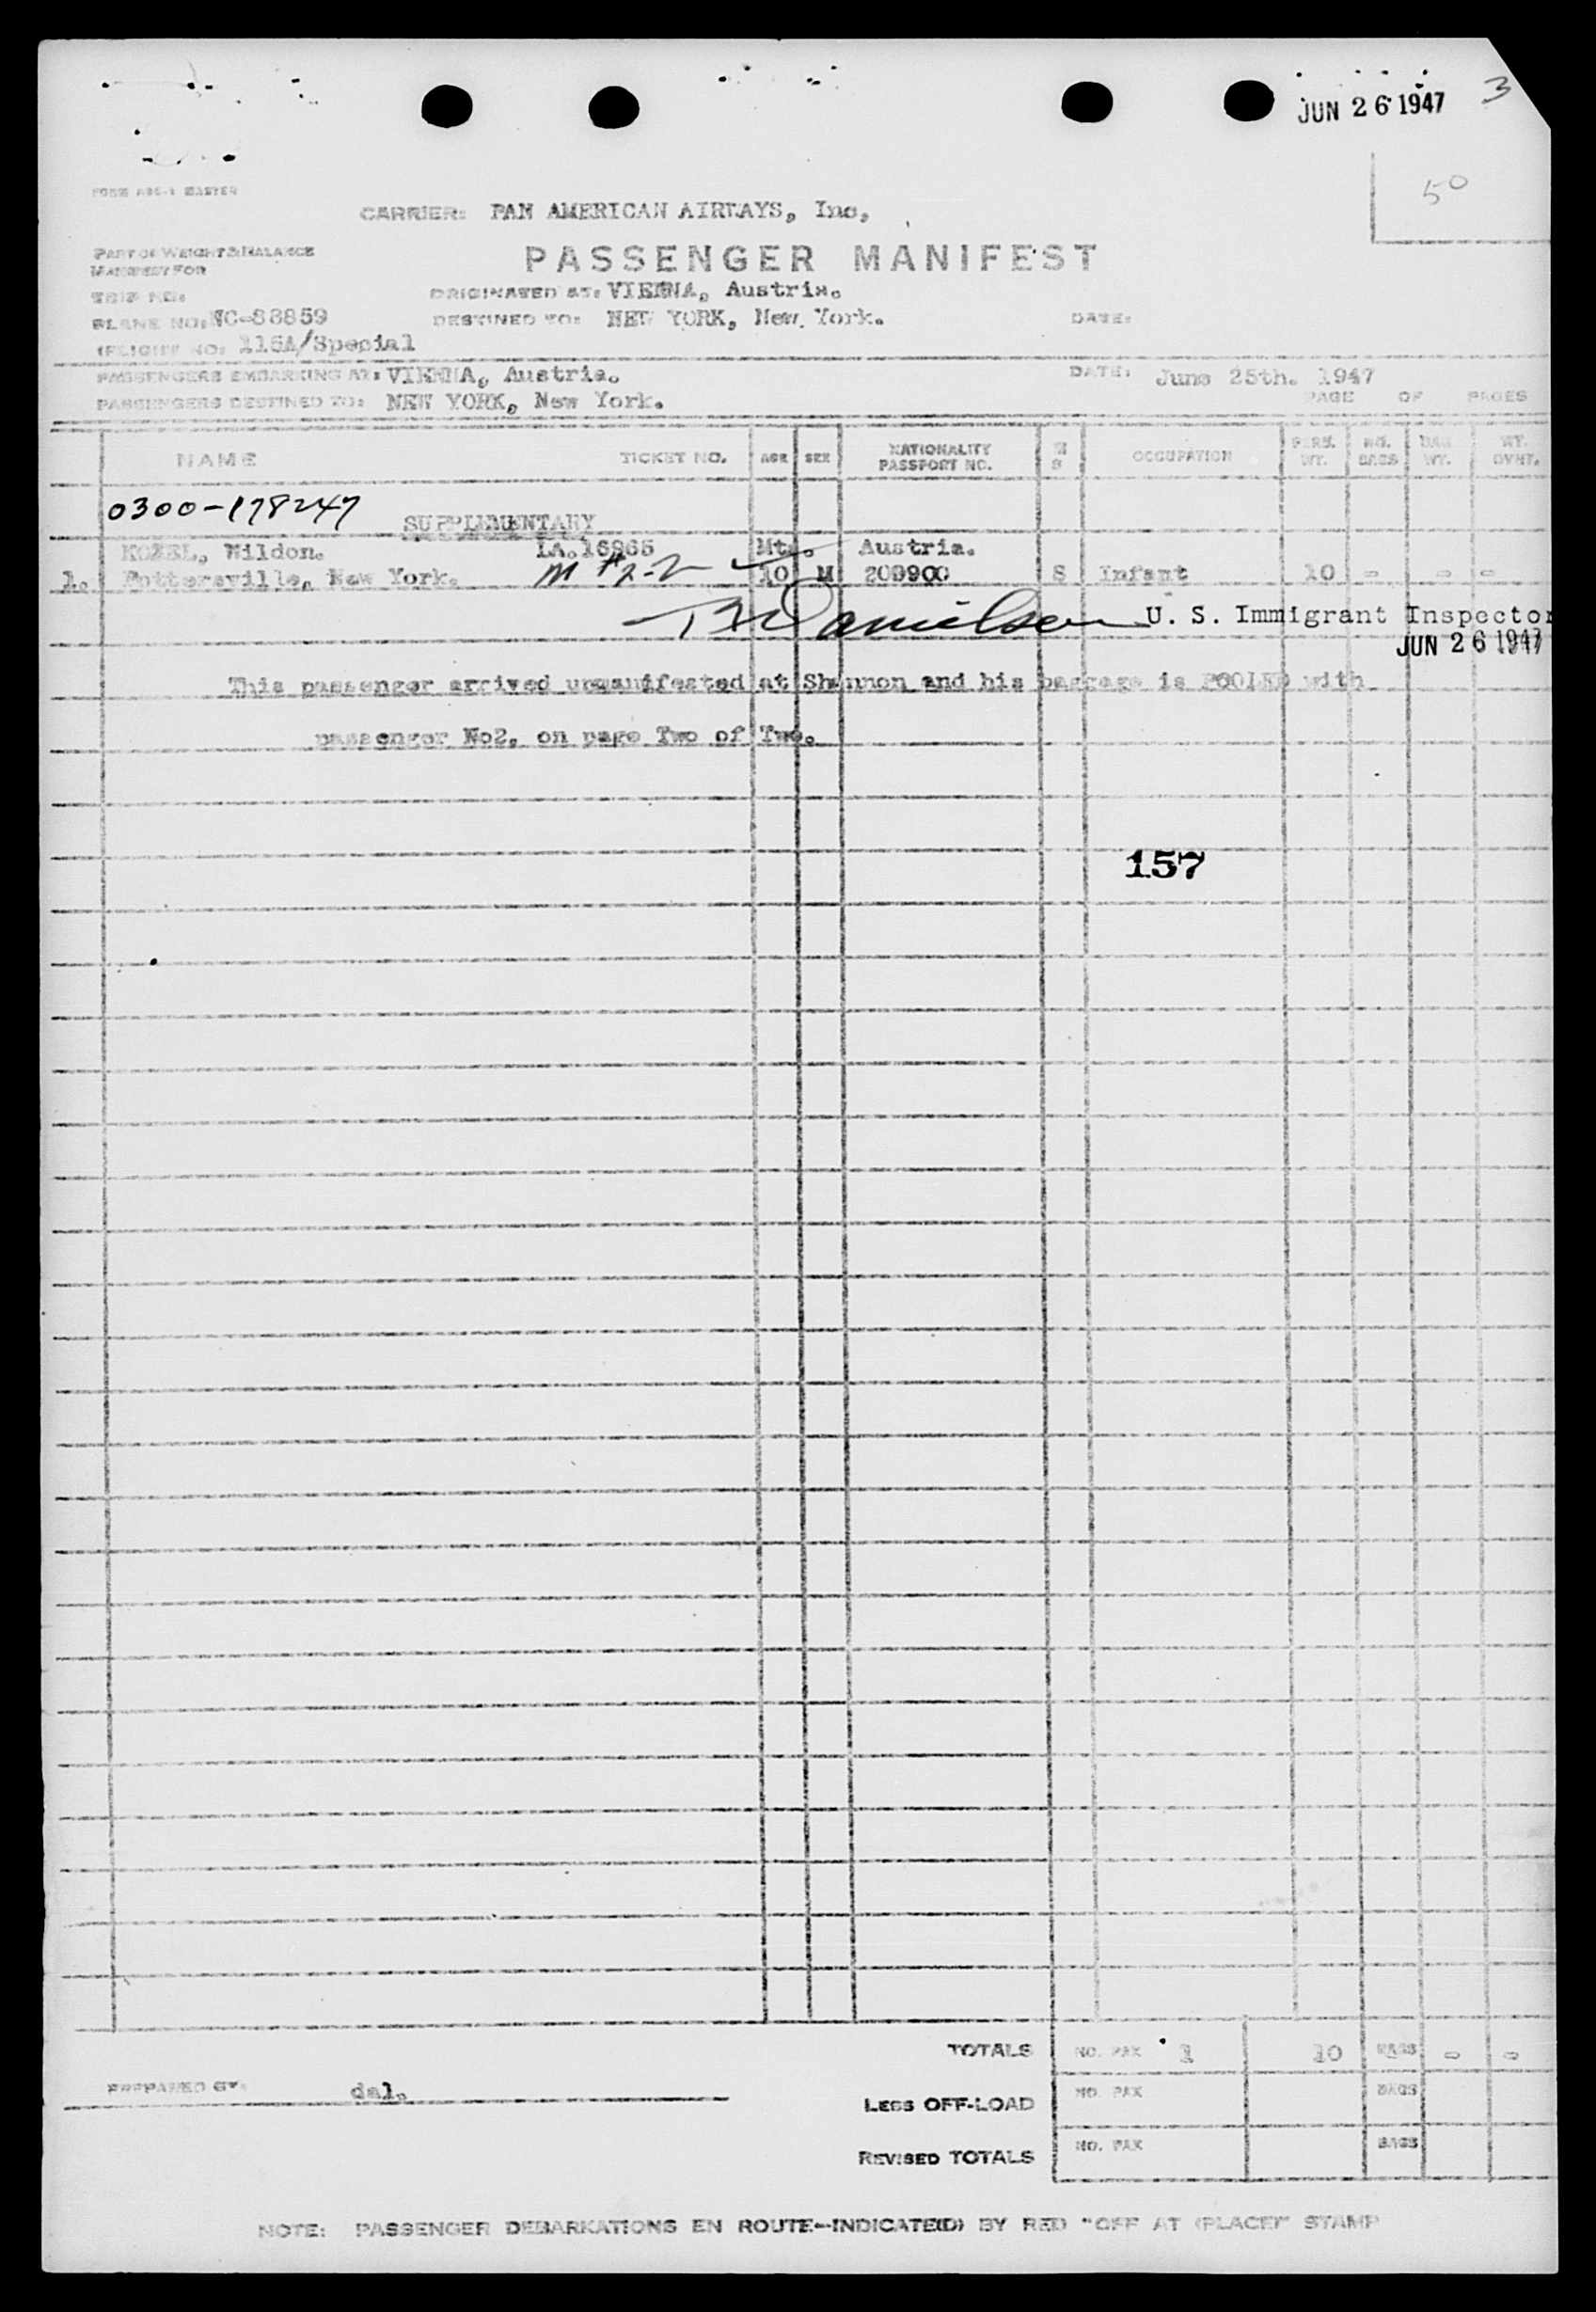 JUN 26 1947 3
50
CARRIER: PAN AMERICAN AIRWAYS, Inc,
PART OF WEIGHT & BALANCE
MANIFEST FOR
PASSENGER MANIFEST
TRIP NO:
ORIGINATED AT: VIENNA, Austria.
PLANE NO: NC-88859
DESTINED TO: NEW YORK, New York.
DATE:
FLIGHT NO: 115A/Special
PASSENGERS EMBARKING AT: VIENNA, Austria.
DATE: June 25th. 1947
PASSENGERS DESTINED TO: NEW YORK, New York.
PAGE OF PAGES
NAME TICKET NO. AGE SEX NATIONALITY PASSPORT NO. M S OCCUPATION PERS. WT. NO. BAGS BAG WT. WT. OVHT.
0300-178247
SUPPLEMENTARY
KOZEL, Wildon. IA.16965 Mt. Austria.
1. Pottersville, New York. M #2-2 10 M 209900 S Infant 10 - - -
Danielson U. S. Immigrant Inspector
JUN 26 1947
This passenger arrived unmanifested at Shannon and his baggage is POOLED with
passenger No2, on page Two of Two.
157
TOTALS NO. PAX 1 10 BAGS - -
PREPARED BY: dal.
LESS OFF-LOAD NO. PAX BAGS
REVISED TOTALS NO. PAX BAGS
NOTE: PASSENGER DEBARKATIONS EN ROUTE-INDICATE(D) BY RED "OFF AT (PLACE)" STAMP